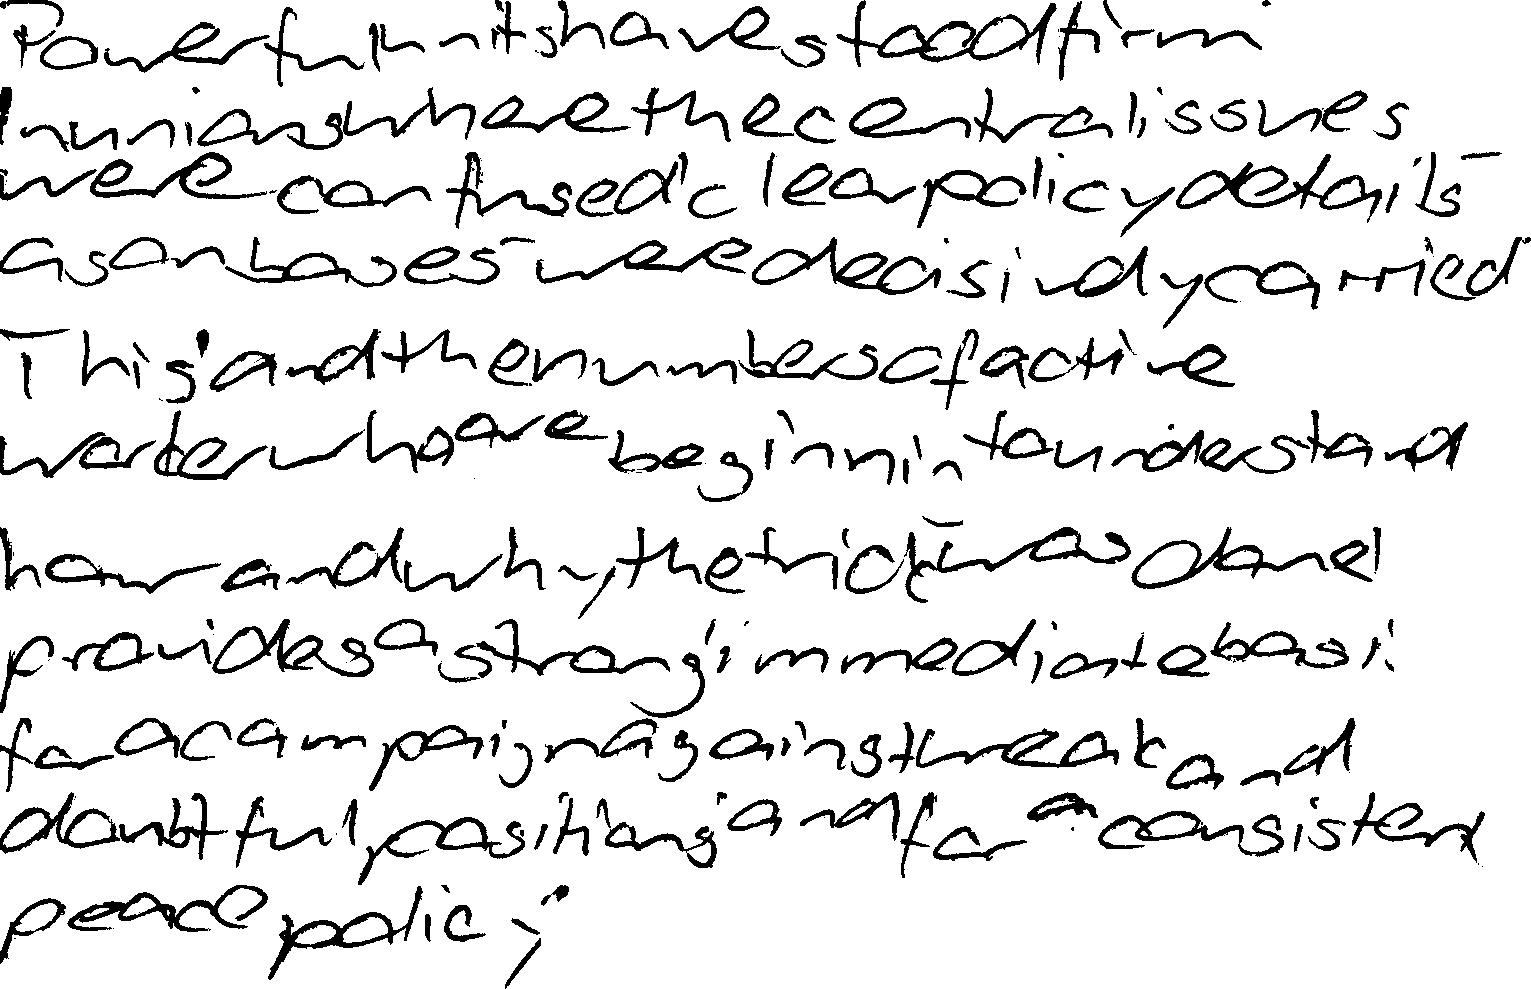 Powerful units have stood firm
In unions where the central issues
were confused clear policy details
as on bases were decisively carried
This and the numbers of active
worker who are beginnin to understand
how and why the trick was done
provides a strong immediate basis
for a campaign against weak and
doubtful positions and for a consistent
peace policy.